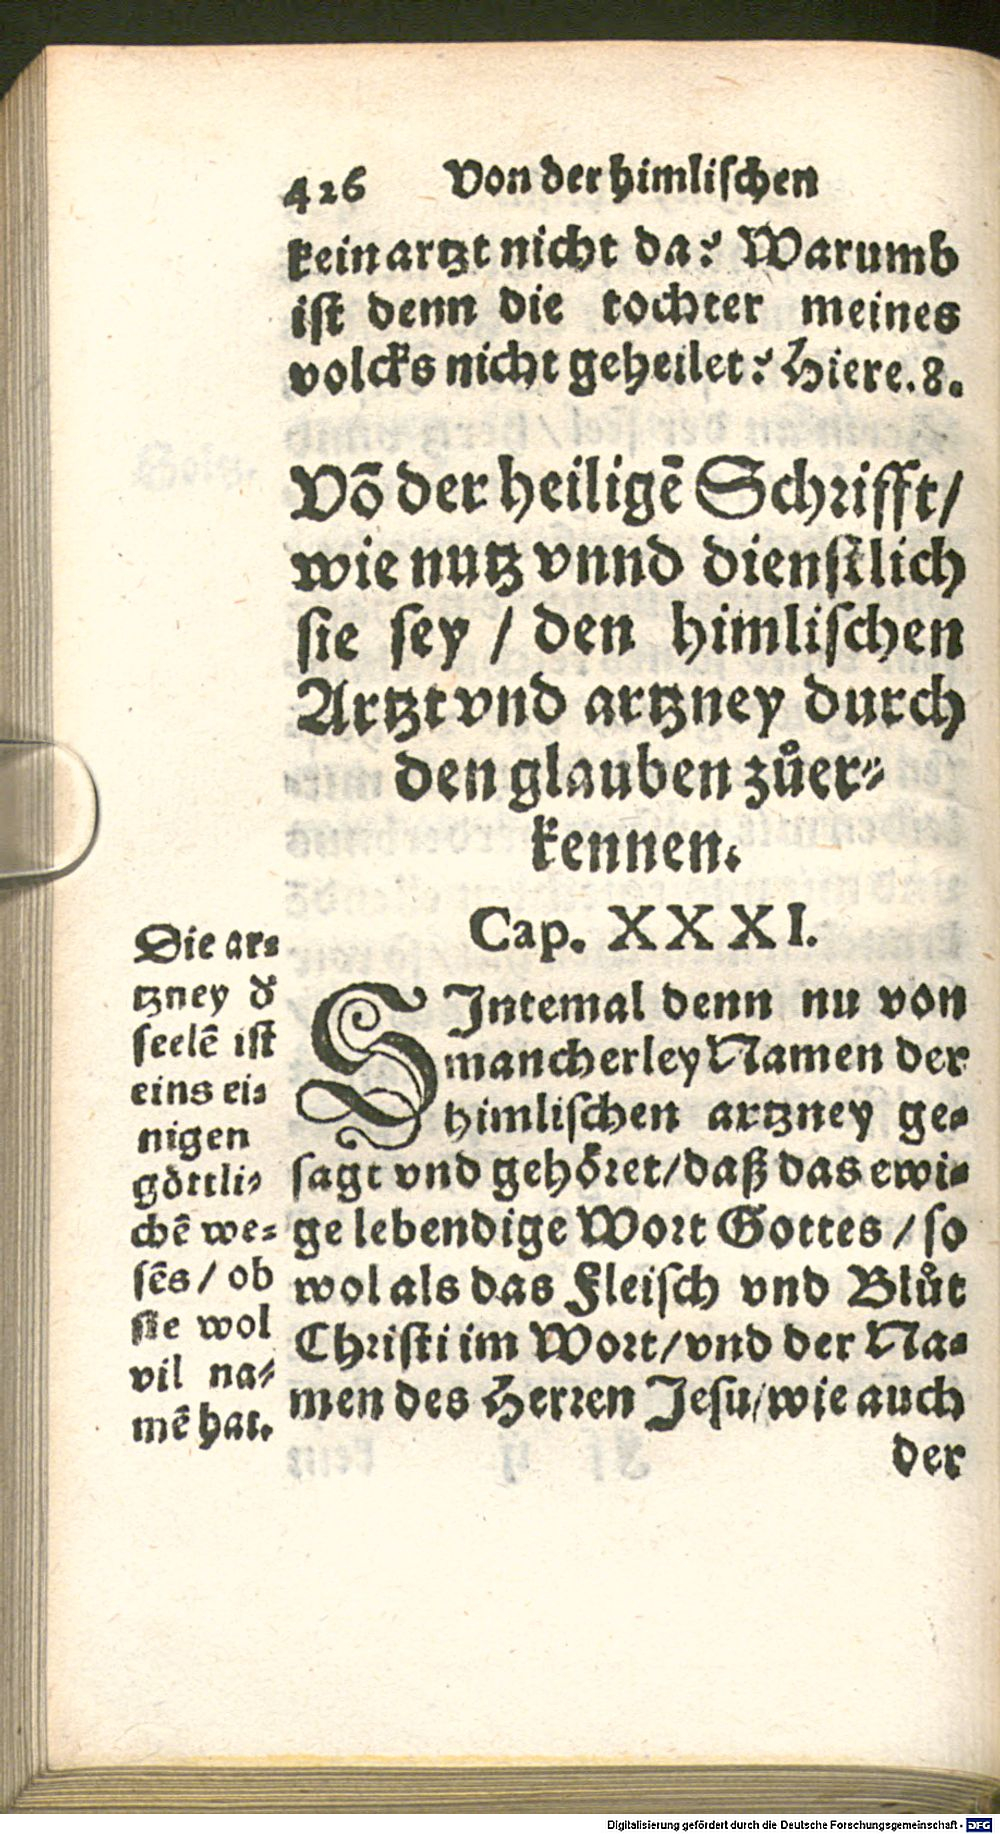 426 Von der himlischen
kein artzt nicht da? Warumb
ist denn die tochter meines
volcks nicht geheilet? Hiere. 8.
Võ der heiligẽ Schrifft/
wie nutz vnnd dienstlich
sie sey / den himlischen
Artzt vnd artzney durch
den glauben zůer⸗
kennen.
Cap. XXXI.
SIntemal denn nu von
mancherley Namen der
himlischen artzney ge⸗
sagt vnd gehöret/ daß das ewi⸗
ge lebendige Wort Gottes / so
wol als das Fleisch vnd Blůt
Christi im Wort/ vnd der Na⸗
men des Herren Jesu/ wie auch
der
Die ar⸗
tzney d̕
seelẽ ist
eins ei⸗
nigen
göttli⸗
chẽ we⸗
sẽs / ob
sie wol
vil na⸗
mẽ hat.
Digitalisierung gefördert durch die Deutsche Forschungsgemeinschaft - DFG